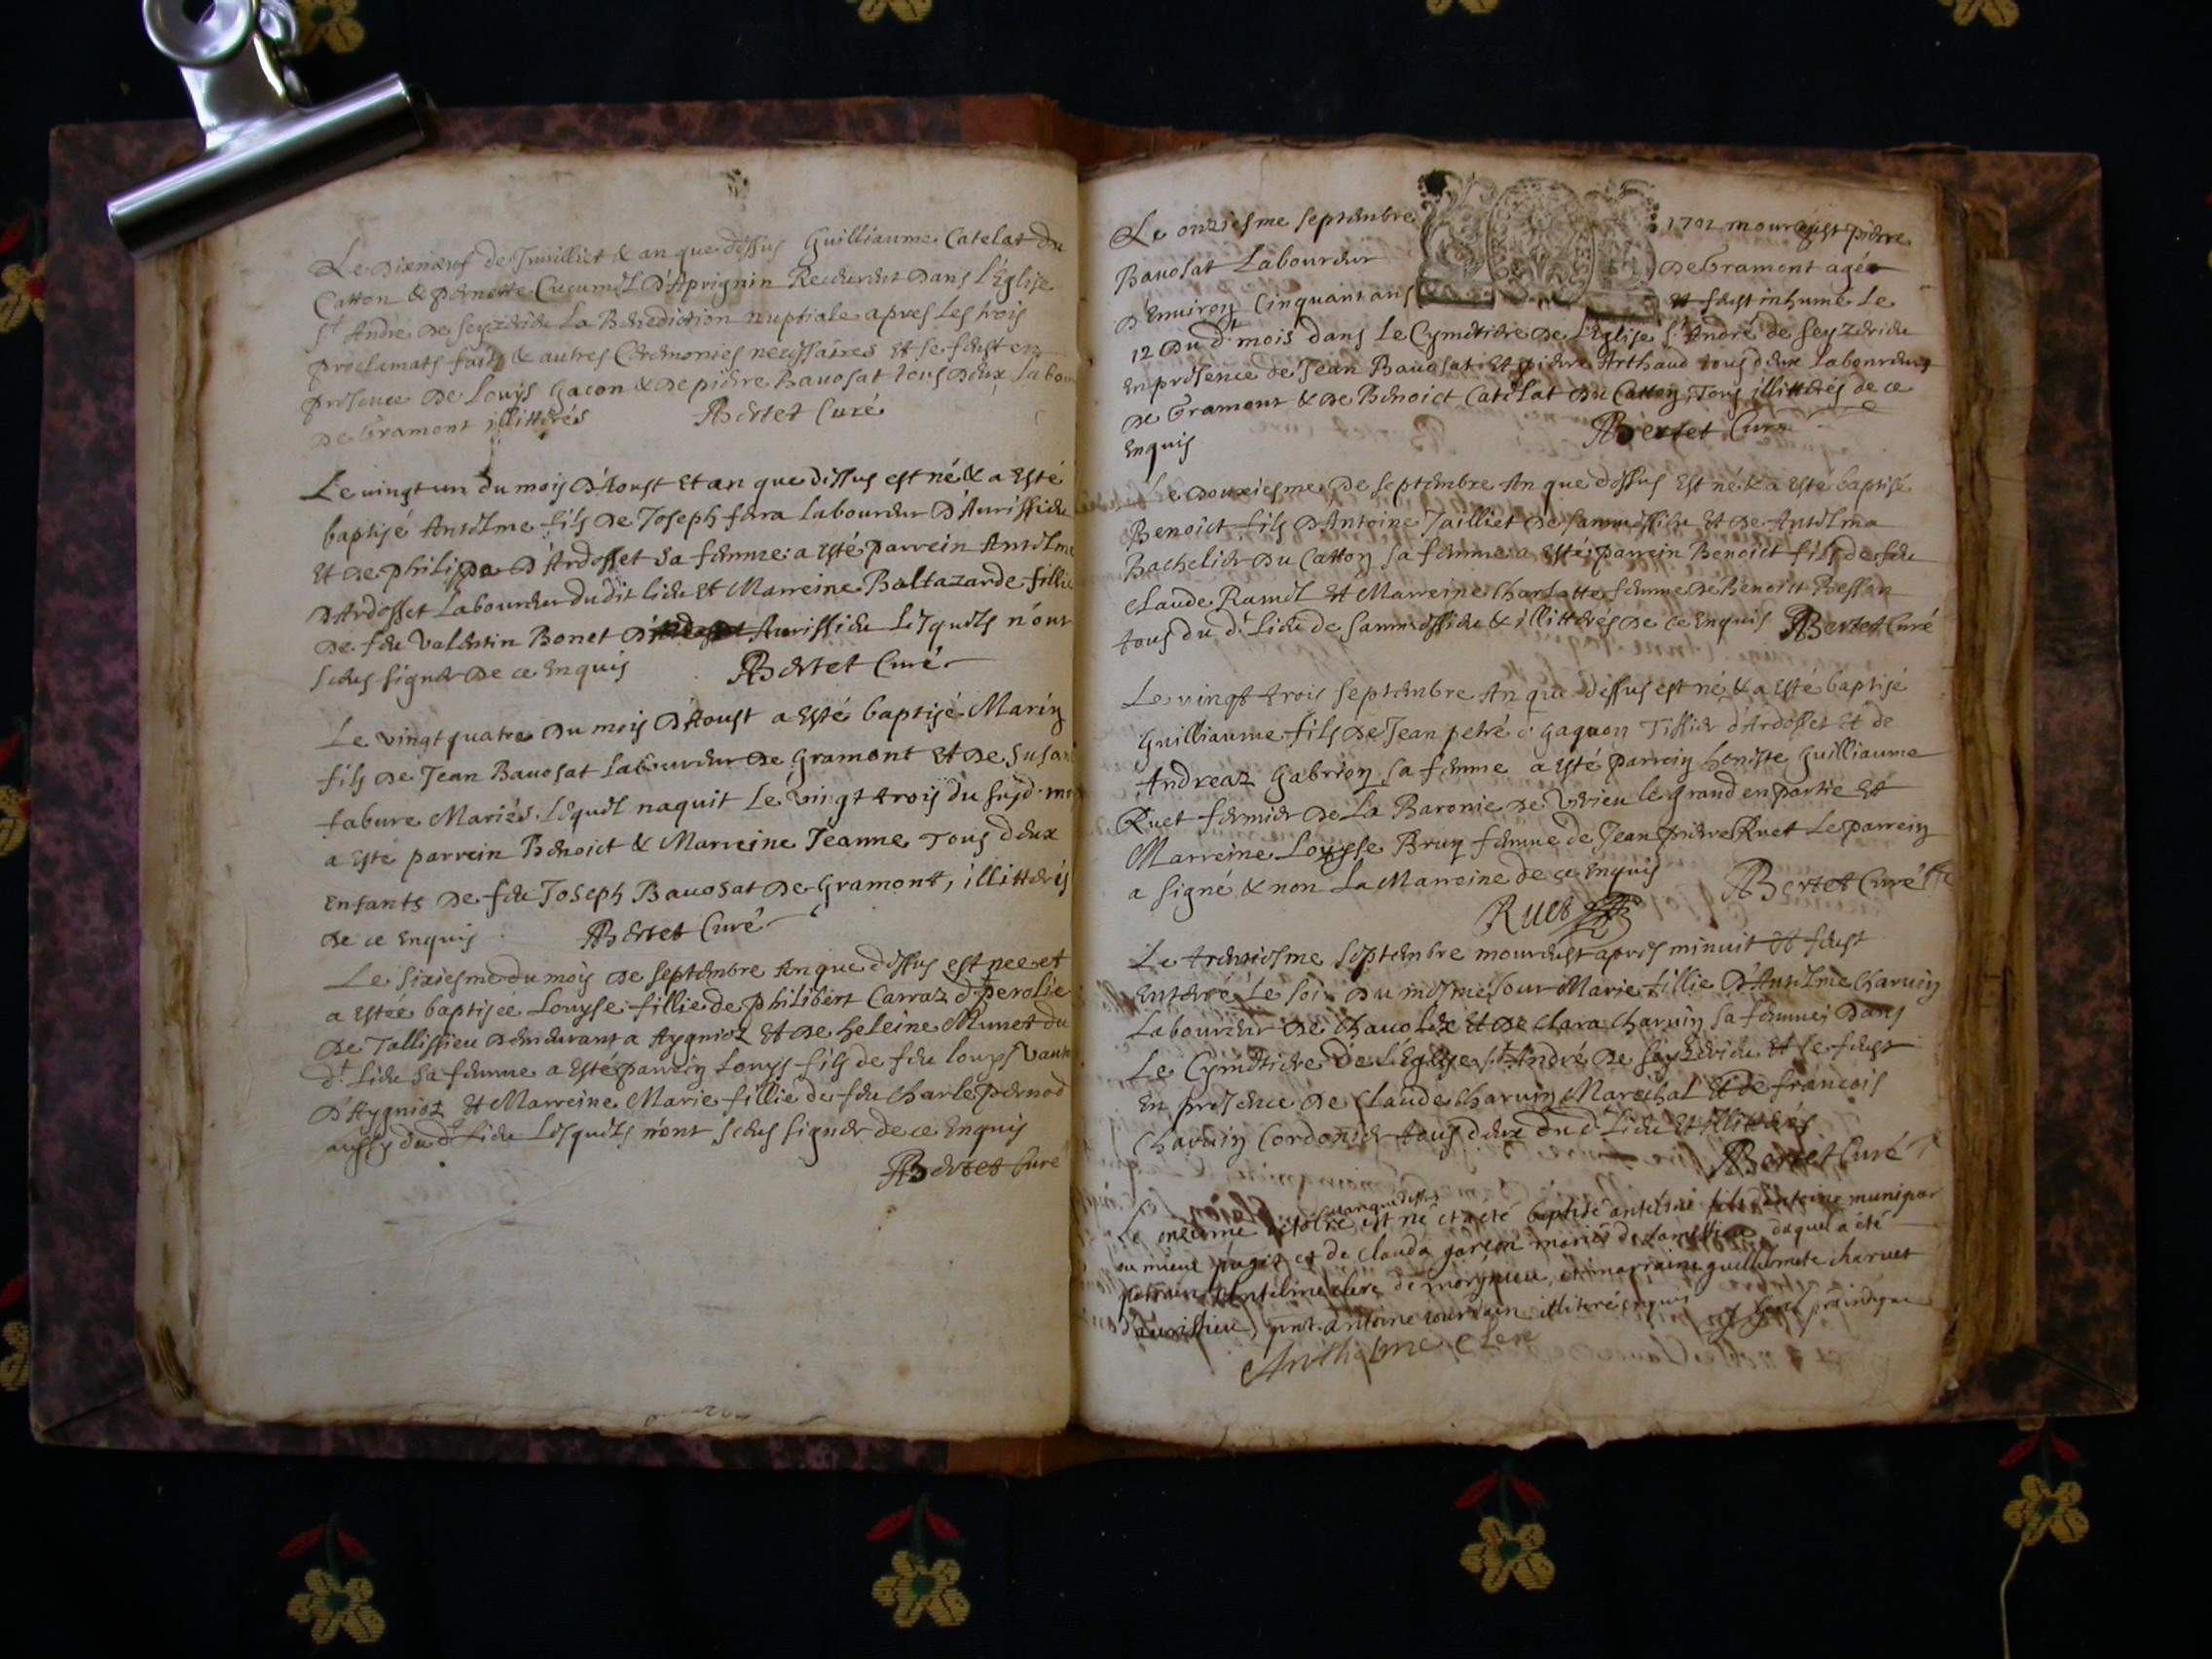 Le dixneuf de Juilliet & an que dessus Guilliaume Catelat du
Catton & pernette Cucumel d'Aprignin Receurent dans l'Eglise
St André de Seyzerieu La Benediction nuptiale apres Les trois
proclamats faits & autres Ceremonies necessaires et se feust en
presence de Louys Gacon & de pierre Bavosat tous deux labou
de Gramont illitterés ABertet Curé
Le vingt un du mois d'Aoust et an que dessus est né & a Esté
baptisé Antelme fils de Joseph fera Laboureur d'Aurissieu
et de philipa d'Ardosset sa femme: a esté parrein Antelme
d'Ardosset Laboureur dudit lieu et Marreine Baltazarde fillie
de feu Valentin Bonet Aurissieu Lesquels n'ont
sceus signer de ce enquis ABertet Curé
Le vingt quatre du mois d'Aoust a esté baptisé Marin
fils de Jean Bavosat Laboureur de Gramont et de Susan
fabure Mariés, Lequel naquit Le vingt trois du susd. mo
a esté parrein Benoict & Marreine Jeanne Tous deux
enfants de feu Joseph Bavosat de Gramont, illitterés
de ce enquis ABertet Curé
Le sixiesme du mois de septembre An que dessus est nee et
a estée baptisée Louyse fillie de philibert Carraz d. perolie
de Tallissieu demeurant a Aygnioz et de heleine Munet du
dt. lieu sa femme a esté parrein Louys fils de feu louys
d'Aygnioz et Marreine Marie fillie de feu Charle pernod
aussy dudt Lieu Lesquels n'ont sceus signer de ce enquis
ABertet Curé
Le onziesme septembre 1702 moureust pierre
Bavosat Laboureur de Gramont agér
d'Environ Cinquant ans et feust inhumé Le
12 du d. mois dans Le Cymetiere de l'Eglise St André de Seyzerieu
en presence de Jean Bavosat et pierre Arthaud tous deux laboureurs
de Gramont & de Benoict Catelat du Catton, Tous illitterés de ce
enquis ABertet Curé
Le douziesme de septembre An que dessus est né & a esté baptisé
Benoict fils d'Antoine Jailliet de Sammessieu et de Antelma
Bachelier du Catton sa femme: a esté parrein Benoict fils de feu
Claude Ramel et Marreine Charlotte femme de Benoict Besson
tous du d. Lieu de Sammessieu & illitterés de ce enquis ABertet Curé
Le vingt trois septembre An que dessus est né & a esté baptisé
Guilliaume fils de Jean petré Gagnon Tissier d'Ardosset et de
Andreaz Gabrion sa femme a esté parrein honeste Guilliaume
Ruet fermier de La Baronie de Virieu le grand en partie et
Marreine Louyse Brun femme de Jean pierre Ruet Le parrein
a signé & non La Marreine de ce enquis ABertet Curé
Ruet
Le trentiesme septembre mourust apres minuit et feust
enterré Le soir du mesme Jour Marie fillie d'Antelme Charvin
Laboureur de Chavolex et de Clara Charvin sa femme; dans
Le Cymetiere de L'Eglyse St André de Seyzerieu et se feust
en presence de Claude Charvin Marechal et de françois
Charvin Cordonier tous deux du d. Lieu et illitterés
ABertet Curé
an que dessus
Le onzieme octobre est né et a eté baptisé antelme fils d'antoine
ou mieux et de clauda garçon mariés de samessieu duquel a été
parrain Anthelme clerc de morgnieu, et marraine guillemete charvet
d'aurissieu, pnt. antoine illiteré enquis
Anthelme Clerc